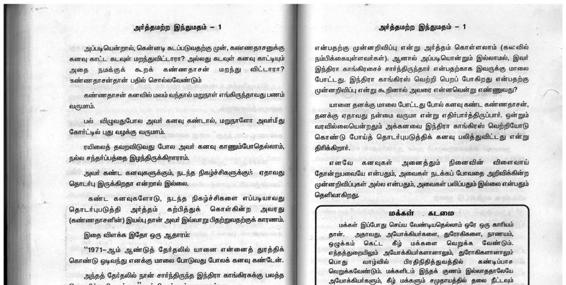 அர்த்தமற்ற இந்துமதம் – 1
அப்படியென்றால், கென்னடி சுடப்படுவதற்கு முன், கண்ணதாசனுக்கு
கனவு காட்ட கடவுள் மறந்துவிட்டாரா? அல்லது கடவுள் கனவு காட்டியும்
அதை நமக்குக் கூறக் கண்ணதாசன் மறந்து விட்டாரா?
கண்ணதாசன்தான் பதில் சொல்லவேண்டும்
கண்ணதாசன் கனவில் மலம் வந்தால் மறுநாள் எங்கிருந்தாவது பணம்
வருமாம்.
பல் விழுவதுபோல அவர் கனவு கண்டால், மறுநாளே அவர்மீது
கோர்ட்டில் புது வழக்கு வருமாம்.
ரயிலைத் தவறவிடுவது போல அவர் கனவு காணும்போதெல்லாம்,
நல்ல சந்தர்ப்பத்தை இழந்திருக்கிறாராம்.
அவர் கண்ட கனவுகளுக்கும், நடந்த நிகழ்ச்சிகளுக்கும் ஏதாவது
தொடர்பு இருக்கிறதா என்றால் இல்லை.
கண்ட கனவுகளோடு, நடந்த நிகழ்ச்சிகளை எப்படியாவது
தொடர்புபடுத்தி அர்த்தம் கற்பித்துக் கொள்கின்ற அவரது
(கண்ணதாசனின்) இயல்பு தான் அவர் இவ்வாறு பிதற்றுவதற்குக் காரணம்.
இதை விளக்க இதோ ஒரு ஆதாரம்:
"1971–ஆம் ஆண்டுத் தேர்தலில் யானை என்னைத் துரத்திக்
கொண்டு ஓடிவந்து எனக்கு மாலை போடுவது போலக் கனவு கண்டேன்.
அந்தத் தேர்தலில் நான் சார்ந்திருந்த இந்திரா காங்கிரசுக்கு பலத்த
அர்த்தமற்ற இந்துமதம் – 1
என்பதற்கு முன்னறிவிப்பு என்று அர்த்தம் கொள்ளலாம் (கனவில்
நம்பிக்கையுள்ளவர்கள்). ஆனால் அப்படியொன்றும் இல்லாமல், இவர்
இந்திரா காங்கிரசைச் சார்ந்திருந்தார் என்பதற்காக இவருக்கு மாலை
போட்டது. இந்திரா காங்கிரஸ் வெற்றி பெறப் போகிறது என்பதற்கு
முன்னறிவிப்பு என்று கூறினால் அவரை என்னவென்று எண்ணுவது?
யானை தனக்கு மாலை போட்டது போல் கனவு கண்ட கண்ணதாசன்,
தனக்கு ஏதாவது நன்மை வருமா என்று எதிர்பார்த்திருப்பார். ஒன்றும்
வரவில்லையென்றதும் அக்கனவை இந்திரா காங்கிரஸ் வெற்றியோடு
கொண்டு போய்த் தொடர்புபடுத்திக் கனவு பலித்துவிட்டது என்று
திரிக்கிறார்.
எனவே கனவுகள் அனைத்தும் நினைவின் விளைவாய்
தோன்றுபவையே என்பதும், அவைகள் நடக்கப் போவதை அறிவிக்கின்ற
முன்னறிவிப்புகள் அல்ல என்பதும், அவைகள் பலிப்பதும் இல்லை என்பதும்
தெளிவாகிறது.
மக்கள் கடமை
மக்கள் இப்போது செய்ய வேண்டியதெல்லாம் ஒரே ஒரு காரியம்
தான். அதாவது, அயோக்கியர்களை, துரோகிகளை, நாணயம்,
ஒழுக்கம் கெட்ட கீழ் மக்களை வெறுக்க வேண்டும்.
எந்தத்துறையிலும் அயோக்கியர்களானாலும், துரோகிகளானாலும்
பொது வாழ்வில் பிரதிநிதித்துவத்தில் கண்டிப்பாக
வெறுக்கவேண்டும். மக்களிடம் இந்தக் குணம் இல்லாததாலேயே
அயோக்கியர்களும், கீழ் மக்களும் சமுதாயத்தில் தலை நீட்டவும்